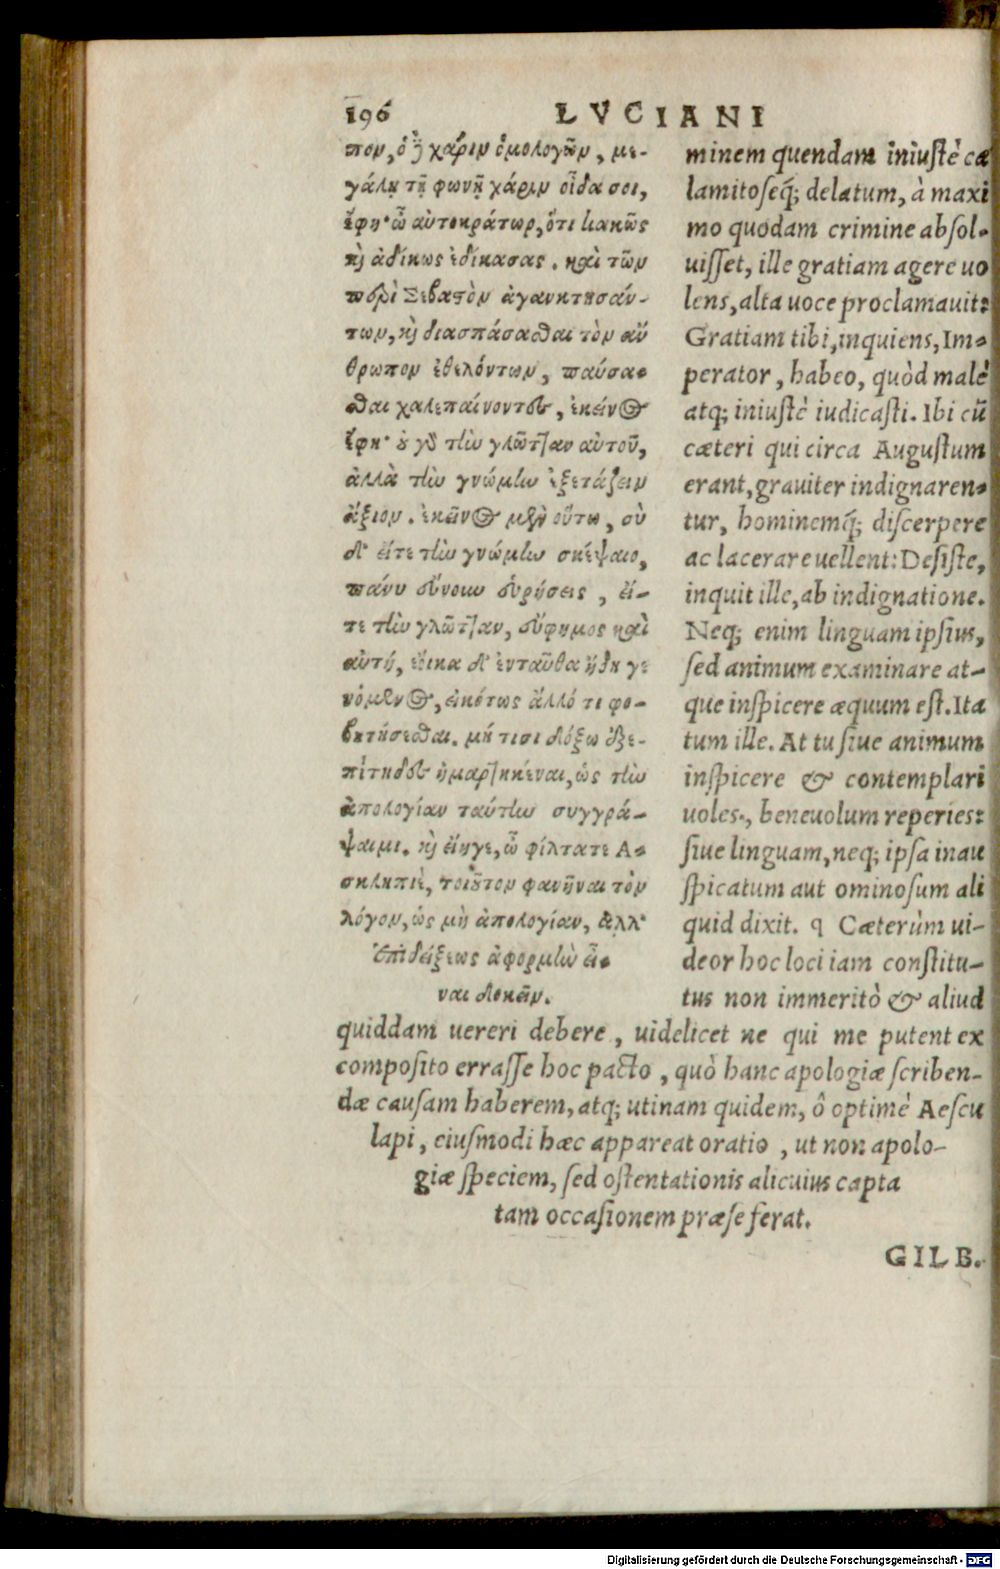 196 LVCIANI
πον, ὁ δὲ χάριν ὁμολογῶν, με-
γάλῃ τῇ φωνῇ χάριν οἶδα σοι,
ἔφη· ὦ αὐτοκράτωρ, ὅτι κακῶς
καὶ ἀδίκως ἐδίκασας. καὶ τῶν
περὶ Σεβαστὸν ἀγανακτησάν-
των, καὶ διασπάσασθαι τὸν ἄν
θρωπον ἐθελόντων, παύσα-
σθαι χαλεπαίνοντες, ἐκεῖνος
ἔφη· οὐ γὰρ τὴν γλῶτταν αὐτοῦ,
ἀλλὰ τὴν γνώμην ἐξετάζειν
ἄξιον. ἐκεῖνος μὲν οὕτω, σὺ
δ' εἴτε τὴν γνώμην σκέψαιο,
πάνυ εὔνουν εὑρήσεις, εἴ-
τε τὴν γλῶτταν, εὔφημος καὶ
αὐτή, ἔοικα δ' ἐνταῦθα ἤδη γε
νόμενος, εἰκότως ἄλλό τι φο-
βηθήσεσθαι. μή τισι δόξω ἐξε-
πίτηδες ἡμαρτηκέναι, ὡς τὴν
ἀπολογίαν ταύτην συγγρά-
ψαιμι. καὶ εἴηγε, ὦ φίλτατε Α-
σκληπιὲ, τοιοῦτον φανῆναι τὸν
λόγον, ὡς μὴ ἀπολογίαν, ἀλλ'
ἐπιδείξεως ἀφορμὴν εἶ-
ναι δοκεῖν.
minem quendam iniustè cæ
lamitoseq́; delatum, à maxi
mo quodam crimine absol-
uisset, ille gratiam agere uo
lens, alta uoce proclamauit:
Gratiam tibi, inquiens, Im-
perator, habeo, quòd malè
atq; iniustè iudicasti. Ibi cũ
cæteri qui circa Augustum
erant, grauiter indignaren-
tur, hominemq́; discerpere
ac lacerare uellent: Desiste,
inquit ille, ab indignatione.
Neq; enim linguam ipsius,
sed animum examinare at-
que inspicere æquum est. Ita
tum ille. At tu siue animum
inspicere & contemplari
uoles, beneuolum reperies:
siue linguam, neq; ipsa inau
spicatum aut ominosum ali
quid dixit. ¶ Cæterùm ui-
deor hoc loci iam constitu-
tus non immeritò & aliud
quiddam uereri debere, uidelicet ne qui me putent ex
composito errasse hoc pacto, quò hanc apologiæ scriben-
dæ causam haberem, atq; utinam quidem, ô optimè Aescu
lapi, eiusmodi hæc appareat oratio, ut non apolo-
giæ speciem, sed ostentationis alicuius capta
tam occasionem præ se ferat.
GILB.
Digitalisierung gefördert durch die Deutsche Forschungsgemeinschaft - DFG